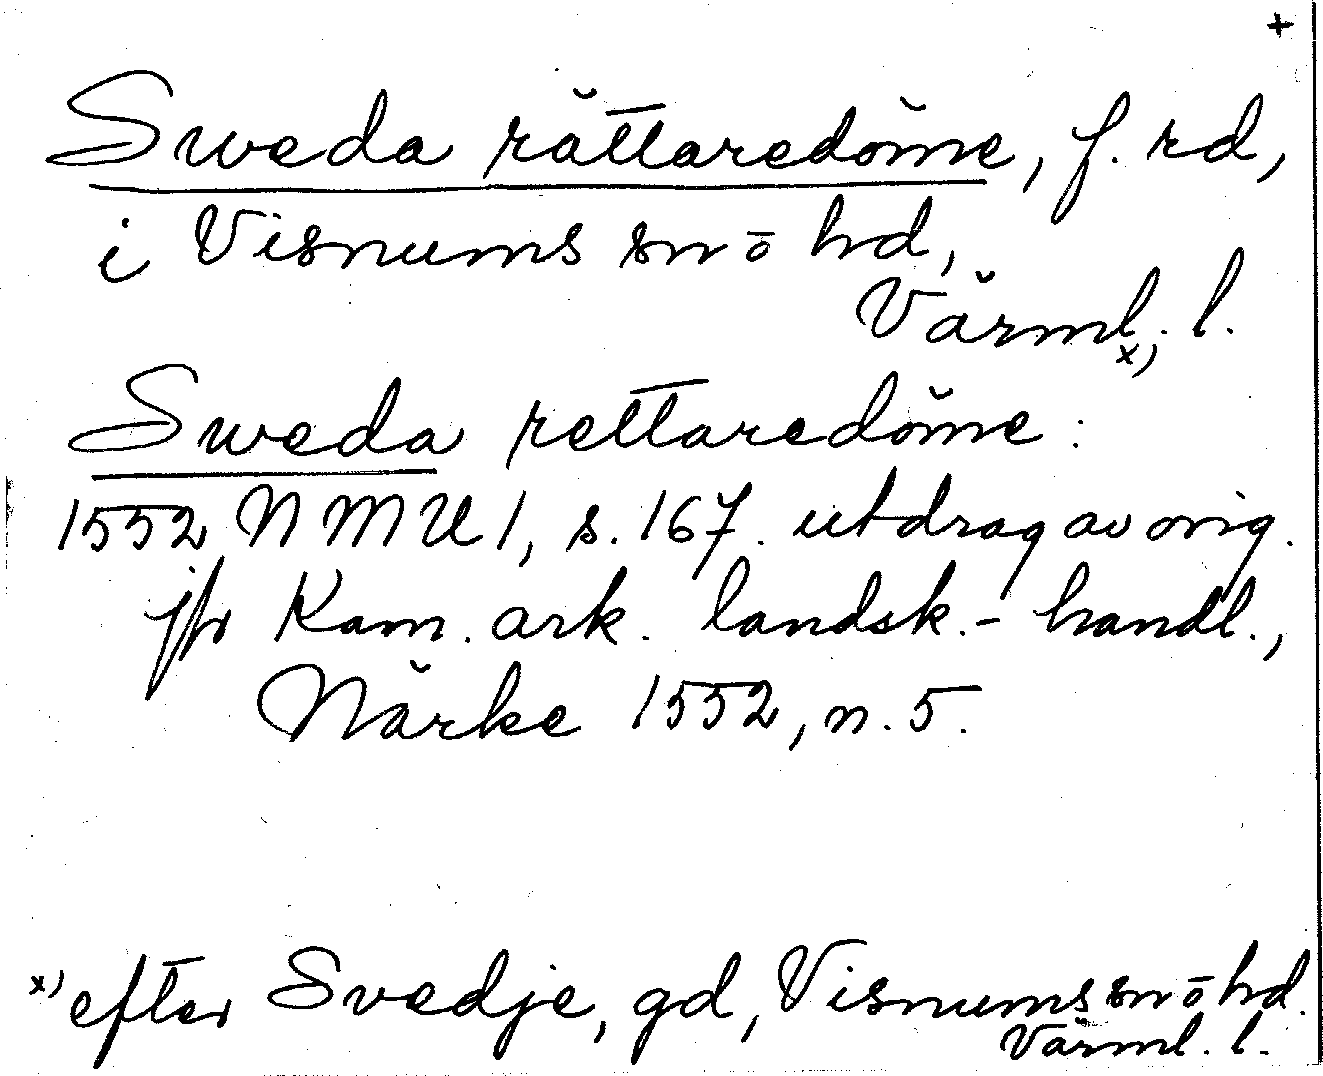 +
Sweda rättaredöme, f. rd,
i Visnums sn o hd,
Värml. l.
x)
Sweda rettaredöme:
1552 NMU 1, s. 167. utdrag av orig.
jfr Kam. ark. landsk.- handl.,
Närke 1552, n. 5.
x) efter Svedje, gd, Visnums sn o hd.
Värml. l.